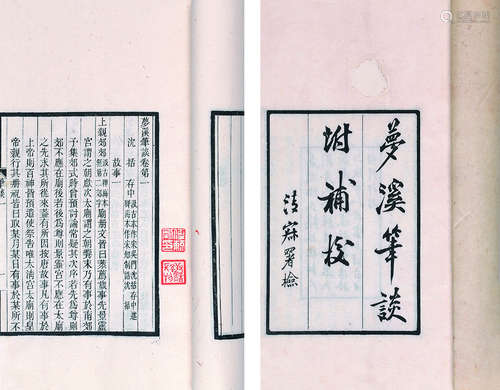 夢溪筆談
坿補校
署檢
夢溪筆談卷第一
沈括 存中
故事一
上親郊廟冊文皆曰恭薦歲事先景靈
宮謂之朝獻次太廟謂之朝饗末乃有事於南郊
予集郊式時曾預討論常疑其次序若先爲尊則
郊不應在廟後若後爲尊則景靈宮不應在太廟
之先求其所從來蓋有所因按唐故事凡有事於
上帝則百神皆預遣使祭告唯太清宮太廟則皇
帝親行其冊祝皆曰取某月某日有事於某所不